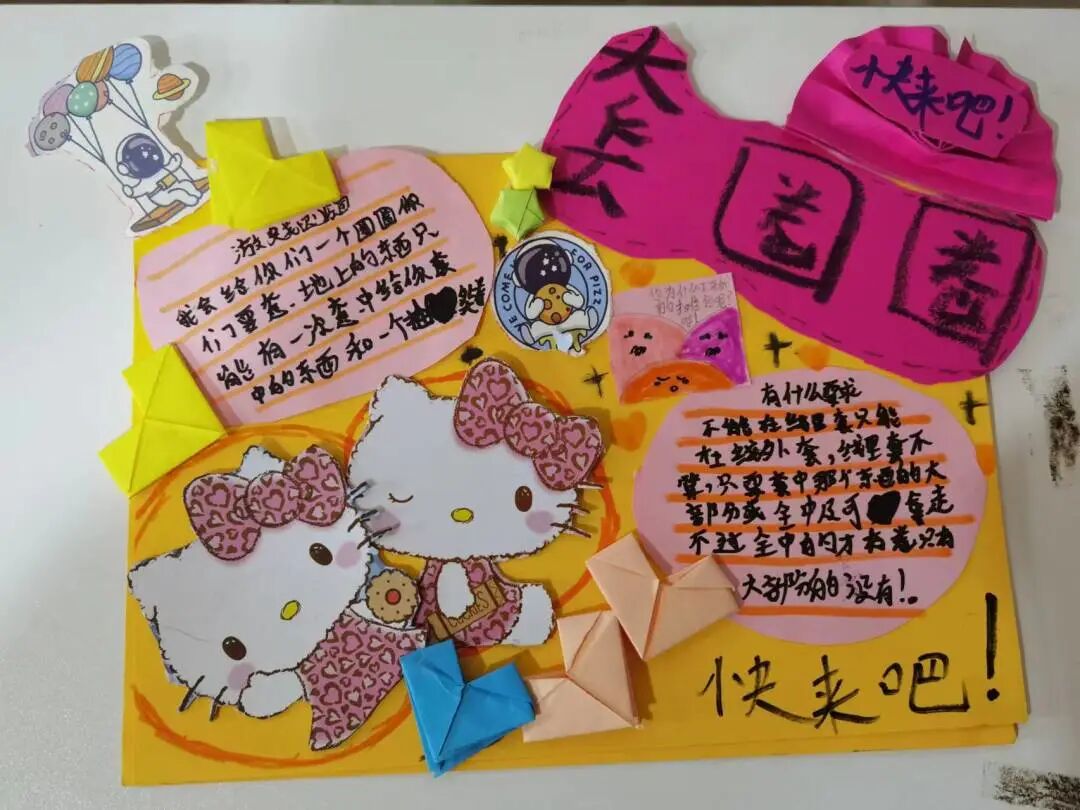 套圈圈
快来吧！
我会给你们一个圈圈你
们要套.地上的东西只
能有一次套中给你套
中的东西和一个
COME
FOR PIZZ
有什么要求
不能在线里套只能
在线外套，线里套不
算，只要套中那个东西的大
部分或全中及可拿走
不过全中的才有 只有
大部分的没有！
快来吧！